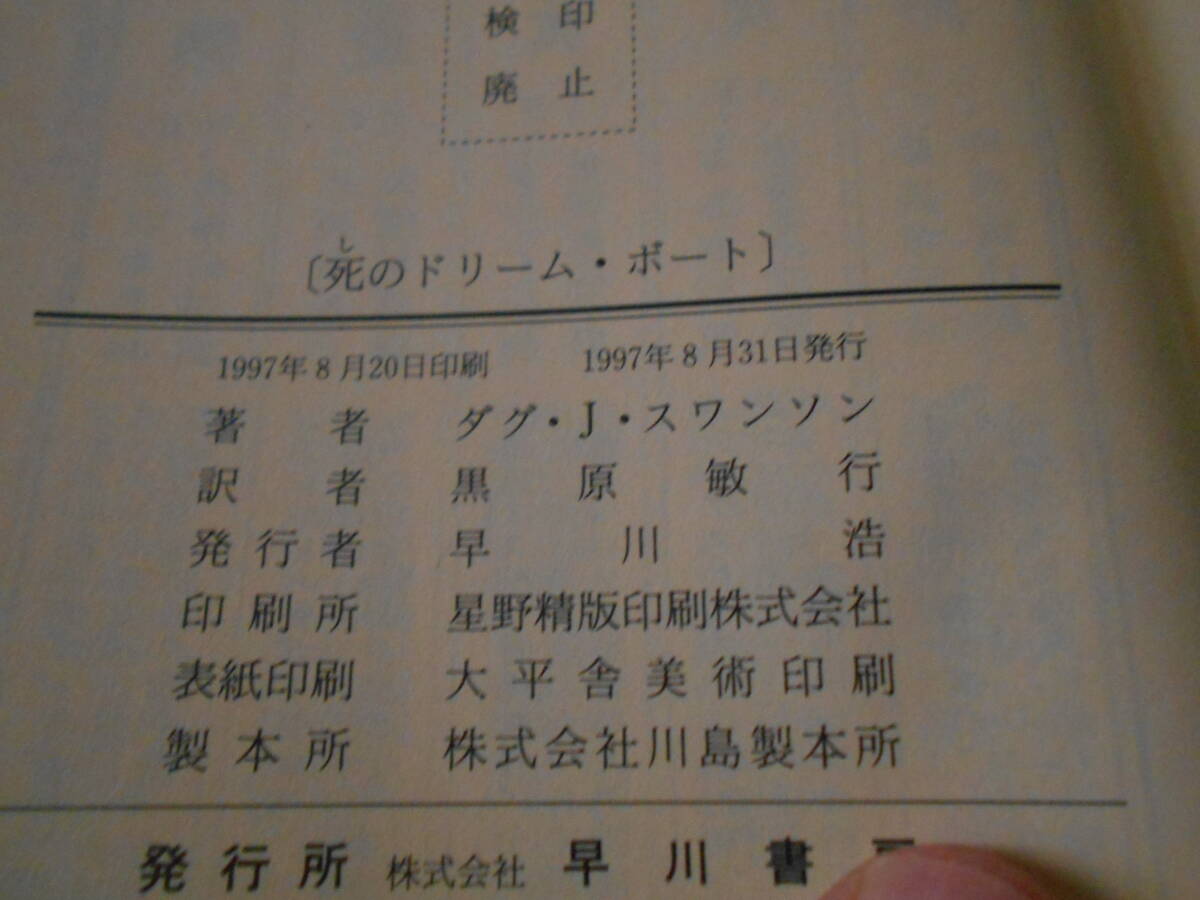 検印
廃止
し
〔死のドリーム・ボート〕
1997年8月20日印刷 1997年8月31日発行
著者 ダグ・J・スワンソン
訳者 黒原敏行
発行者 早川浩
印刷所 星野精版印刷株式会社
表紙印刷 大平舎美術印刷
製本所 株式会社川島製本所
発行所 株式会社 早川書